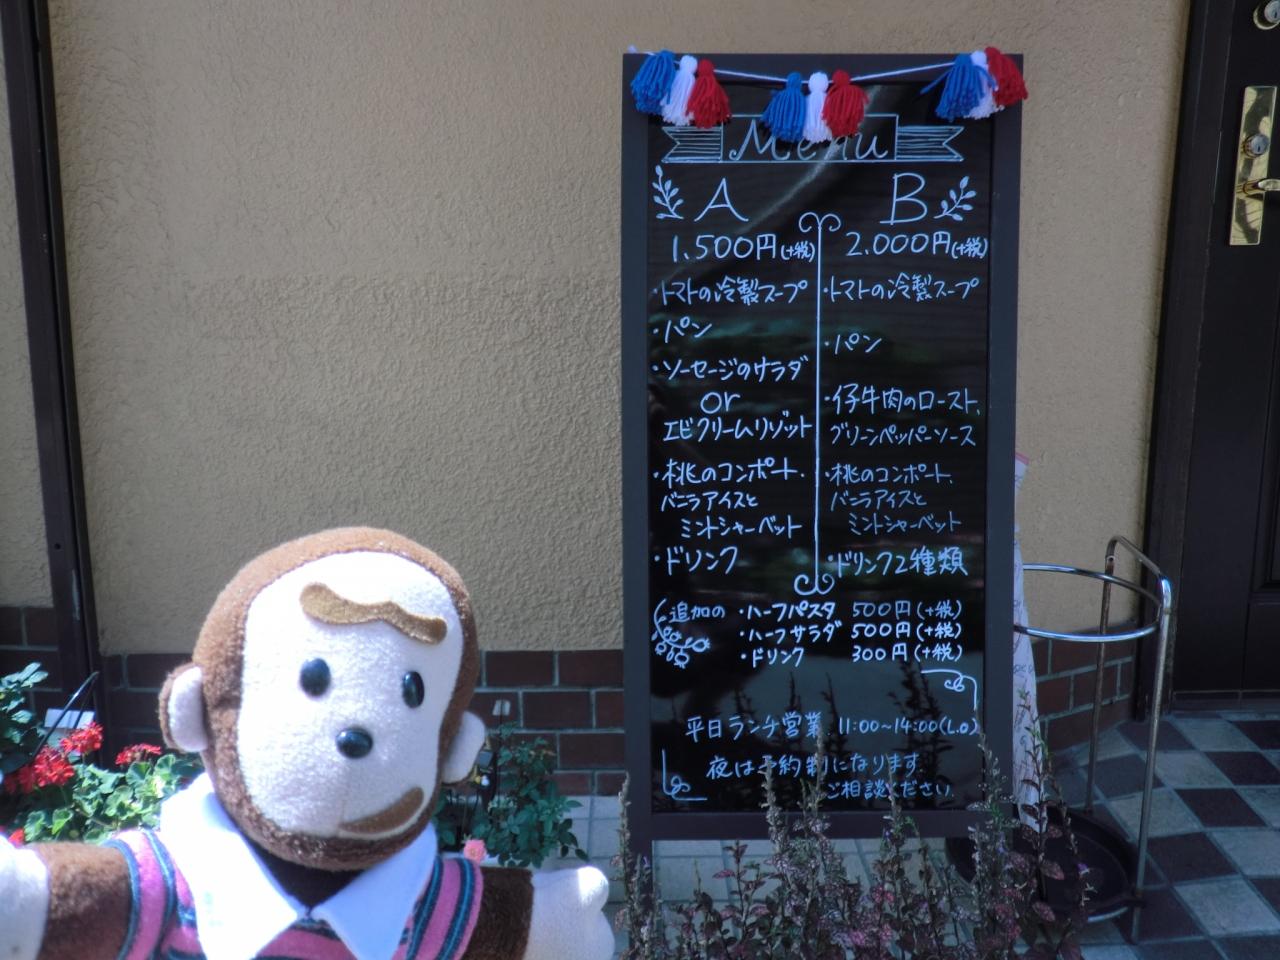 Menu
A
1.500円(+税)
・トマトの冷製スープ
・パン
・ソーセージのサラダ
or
エビクリームリゾット
・桃のコンポート、
バニラアイスと
ミントシャーベット
・ドリンク
B
2.000円(+税)
・トマトの冷製スープ
・パン
・仔牛肉のロースト、
グリーンペッパーソース
・桃のコンポート、
バニラアイスと
ミントシャーベット
・ドリンク2種類
追加の ・ハーフパスタ 500円(+税)
・ハーフサラダ 500円(+税)
・ドリンク 300円(+税)
平日ランチ営業 11:00~14:00(L.o)
夜は予約制になります
ご相談ください